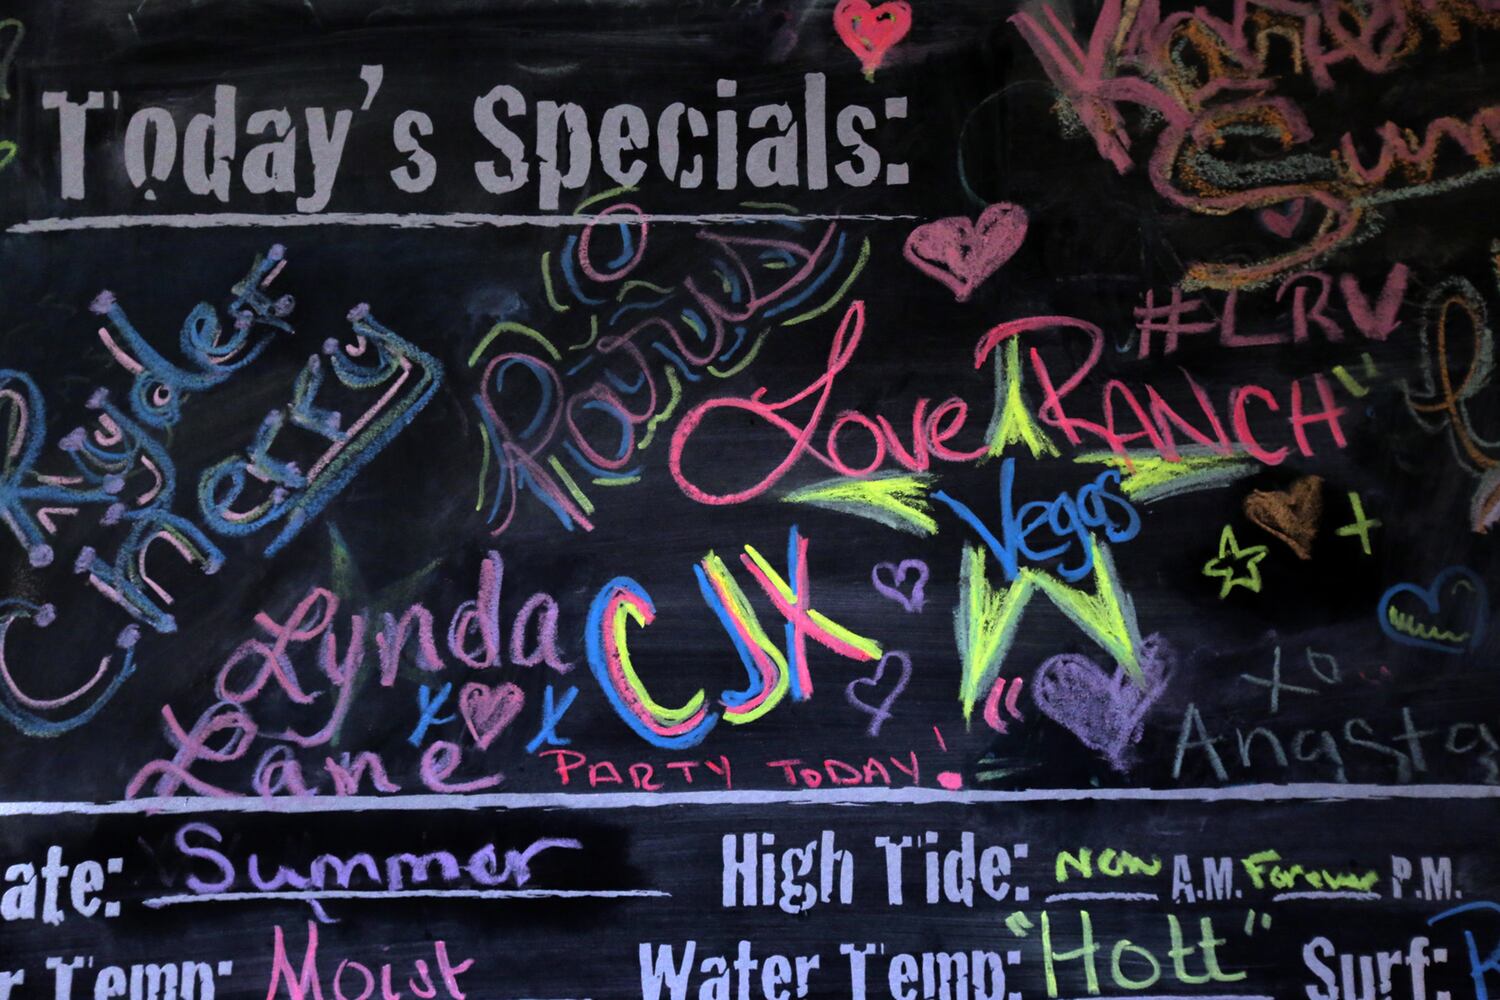 Today's Specials:
Ryder
Cherry
#LRV
Love RANCH"
Vegas
CJX
Lynda
Lane
x x
PARTY TODAY!
xo
Angsta
ate: Summer
High Tide: Now A.M. Forever P.M.
r Temp: Moist
Water Temp: "Hott"
Surf: